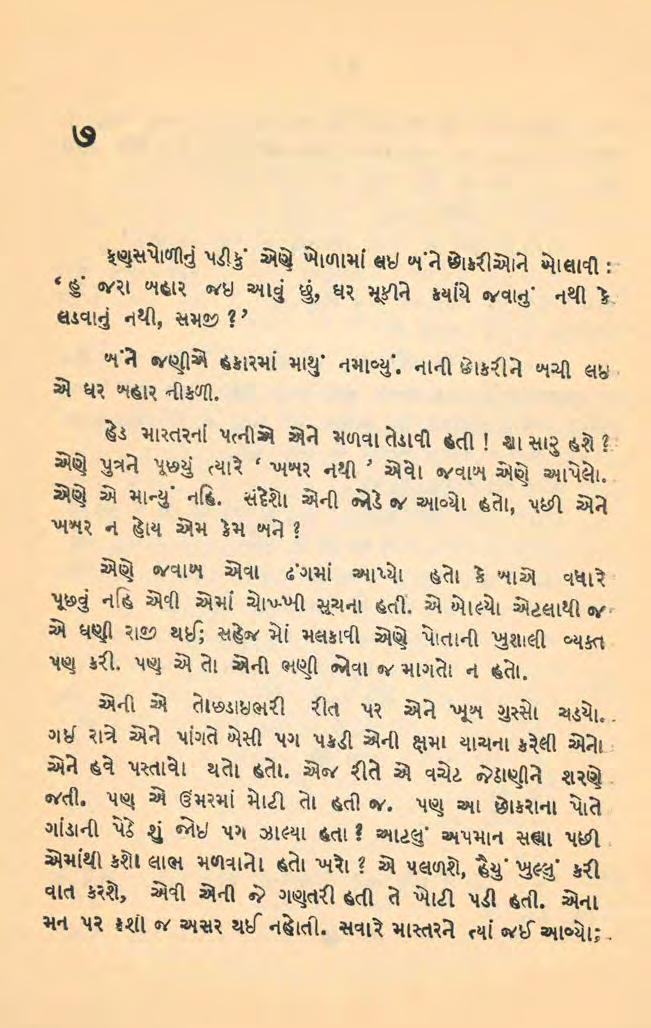 ૭
ફણસપોળીનું પડીકું એણે ખોળામાં લઇ બંને છોકરીઓને બોલાવી :
‘ હું જરા બહાર જઇ આવું છું, ઘર મૂકીને કયાંયે જવાનું નથી કે
લડવાનું નથી, સમજી ?’
બંને જણીએ હકારમાં માથું નમાવ્યું. નાની છોકરીને બચી લઇ
એ ઘર બહાર નીકળી.
હેડ માસ્તરનાં પત્નીએ એને મળવા તેડાવી હતી ! શા સારુ હશે ?
એણે પુત્રને પૂછયું ત્યારે ‘ ખબર નથી ’ એવો જવાબ એણે આપેલો.
એણે એ માન્યું નહિ. સંદેશો એની જોડે જ આવ્યો હતો, પછી એને
ખબર ન હોય એમ કેમ બને ?
એણે જવાબ એવા ઢંગમાં આપ્યો હતો કે બાએ વધારે
પૂછવું નહિ એવી એમાં ચોખ્ખી સૂચના હતી. એ બોલ્યો એટલાથી જ
એ ઘણી રાજી થઈ; સહેજ મોં મલકાવી એણે પોતાની ખુશાલી વ્યકત
પણ કરી. પણ એ તો એની ભણી જોવા જ માગતો ન હતો.
એની એ તોછડાઇભરી રીત પર એને ખૂબ ગુસ્સો ચડયો.
ગઇ રાત્રે એને પાંગતે બેસી પગ પકડી એની ક્ષમા યાચના કરેલી એનો
એને હવે પસ્તાવો થતો હતો. એજ રીતે એ વચેટ જેઠાણીને શરણે
જતી. પણ એ ઉંમરમાં મોટી તો હતી જ. પણ આ છોકરાના પોતે
ગાંડાની પેઠે શું જોઇ પગ ઝાલ્યા હતા ? આટલું અપમાન સહ્યા પછી
એમાંથી કશો લાભ મળવાનો હતો ખરો ? એ પલળશે, હૈયું ખુલ્લું કરી
વાત કરશે, એવી એની જે ગણતરી હતી તે ખોટી પડી હતી. એના
મન પર કશી જ અસર થઈ નહોતી. સવારે માસ્તરને ત્યાં જઈ આવ્યો;